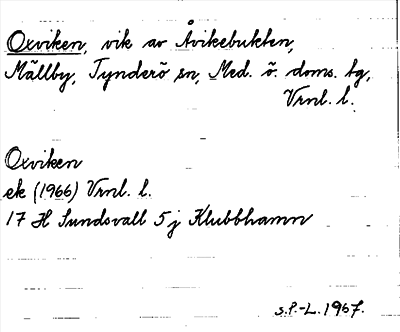 Oxviken, vik av Åvikebukten,
Mällby, Tynderö sn, Med. ö. doms. tg,
Vrnl. l.
Oxviken
ek (1966) Vrnl. l.
17 H Sundsvall 5 j Klubbhamn
s.P.-L. 1967.